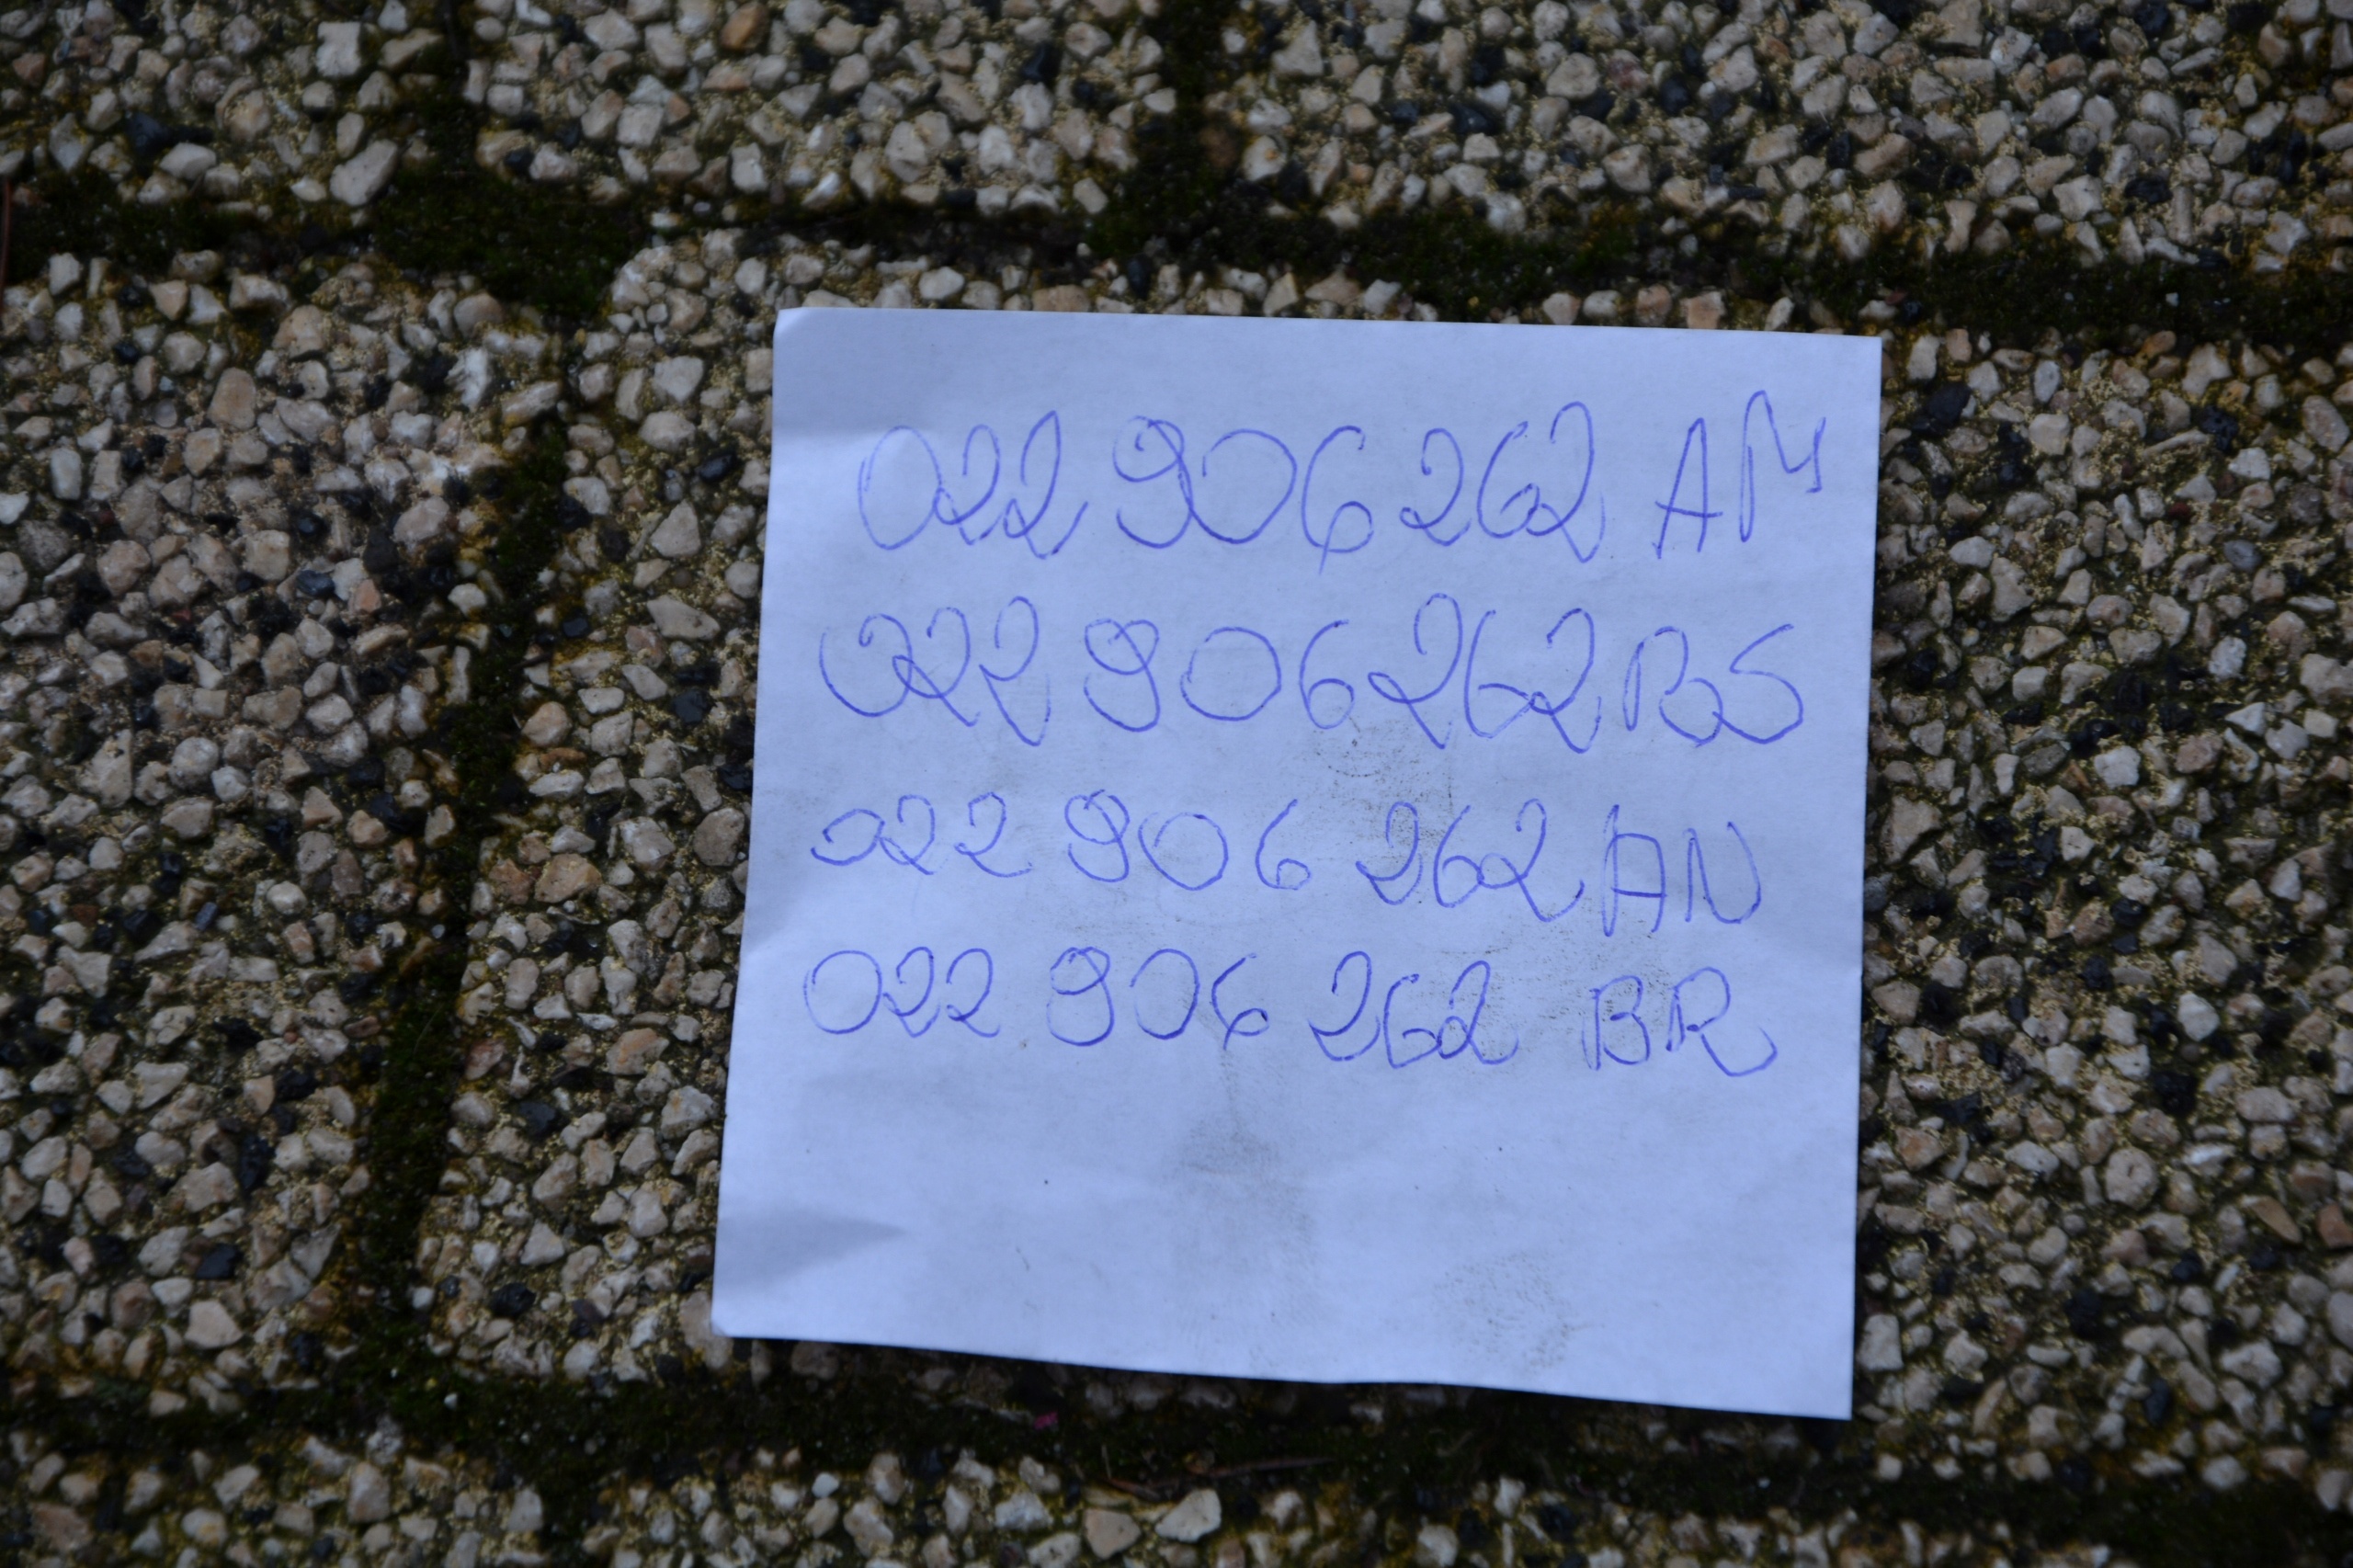 022 906 262 AM
022 906 262 BS
022 906 262 AN
022 906 262 BR